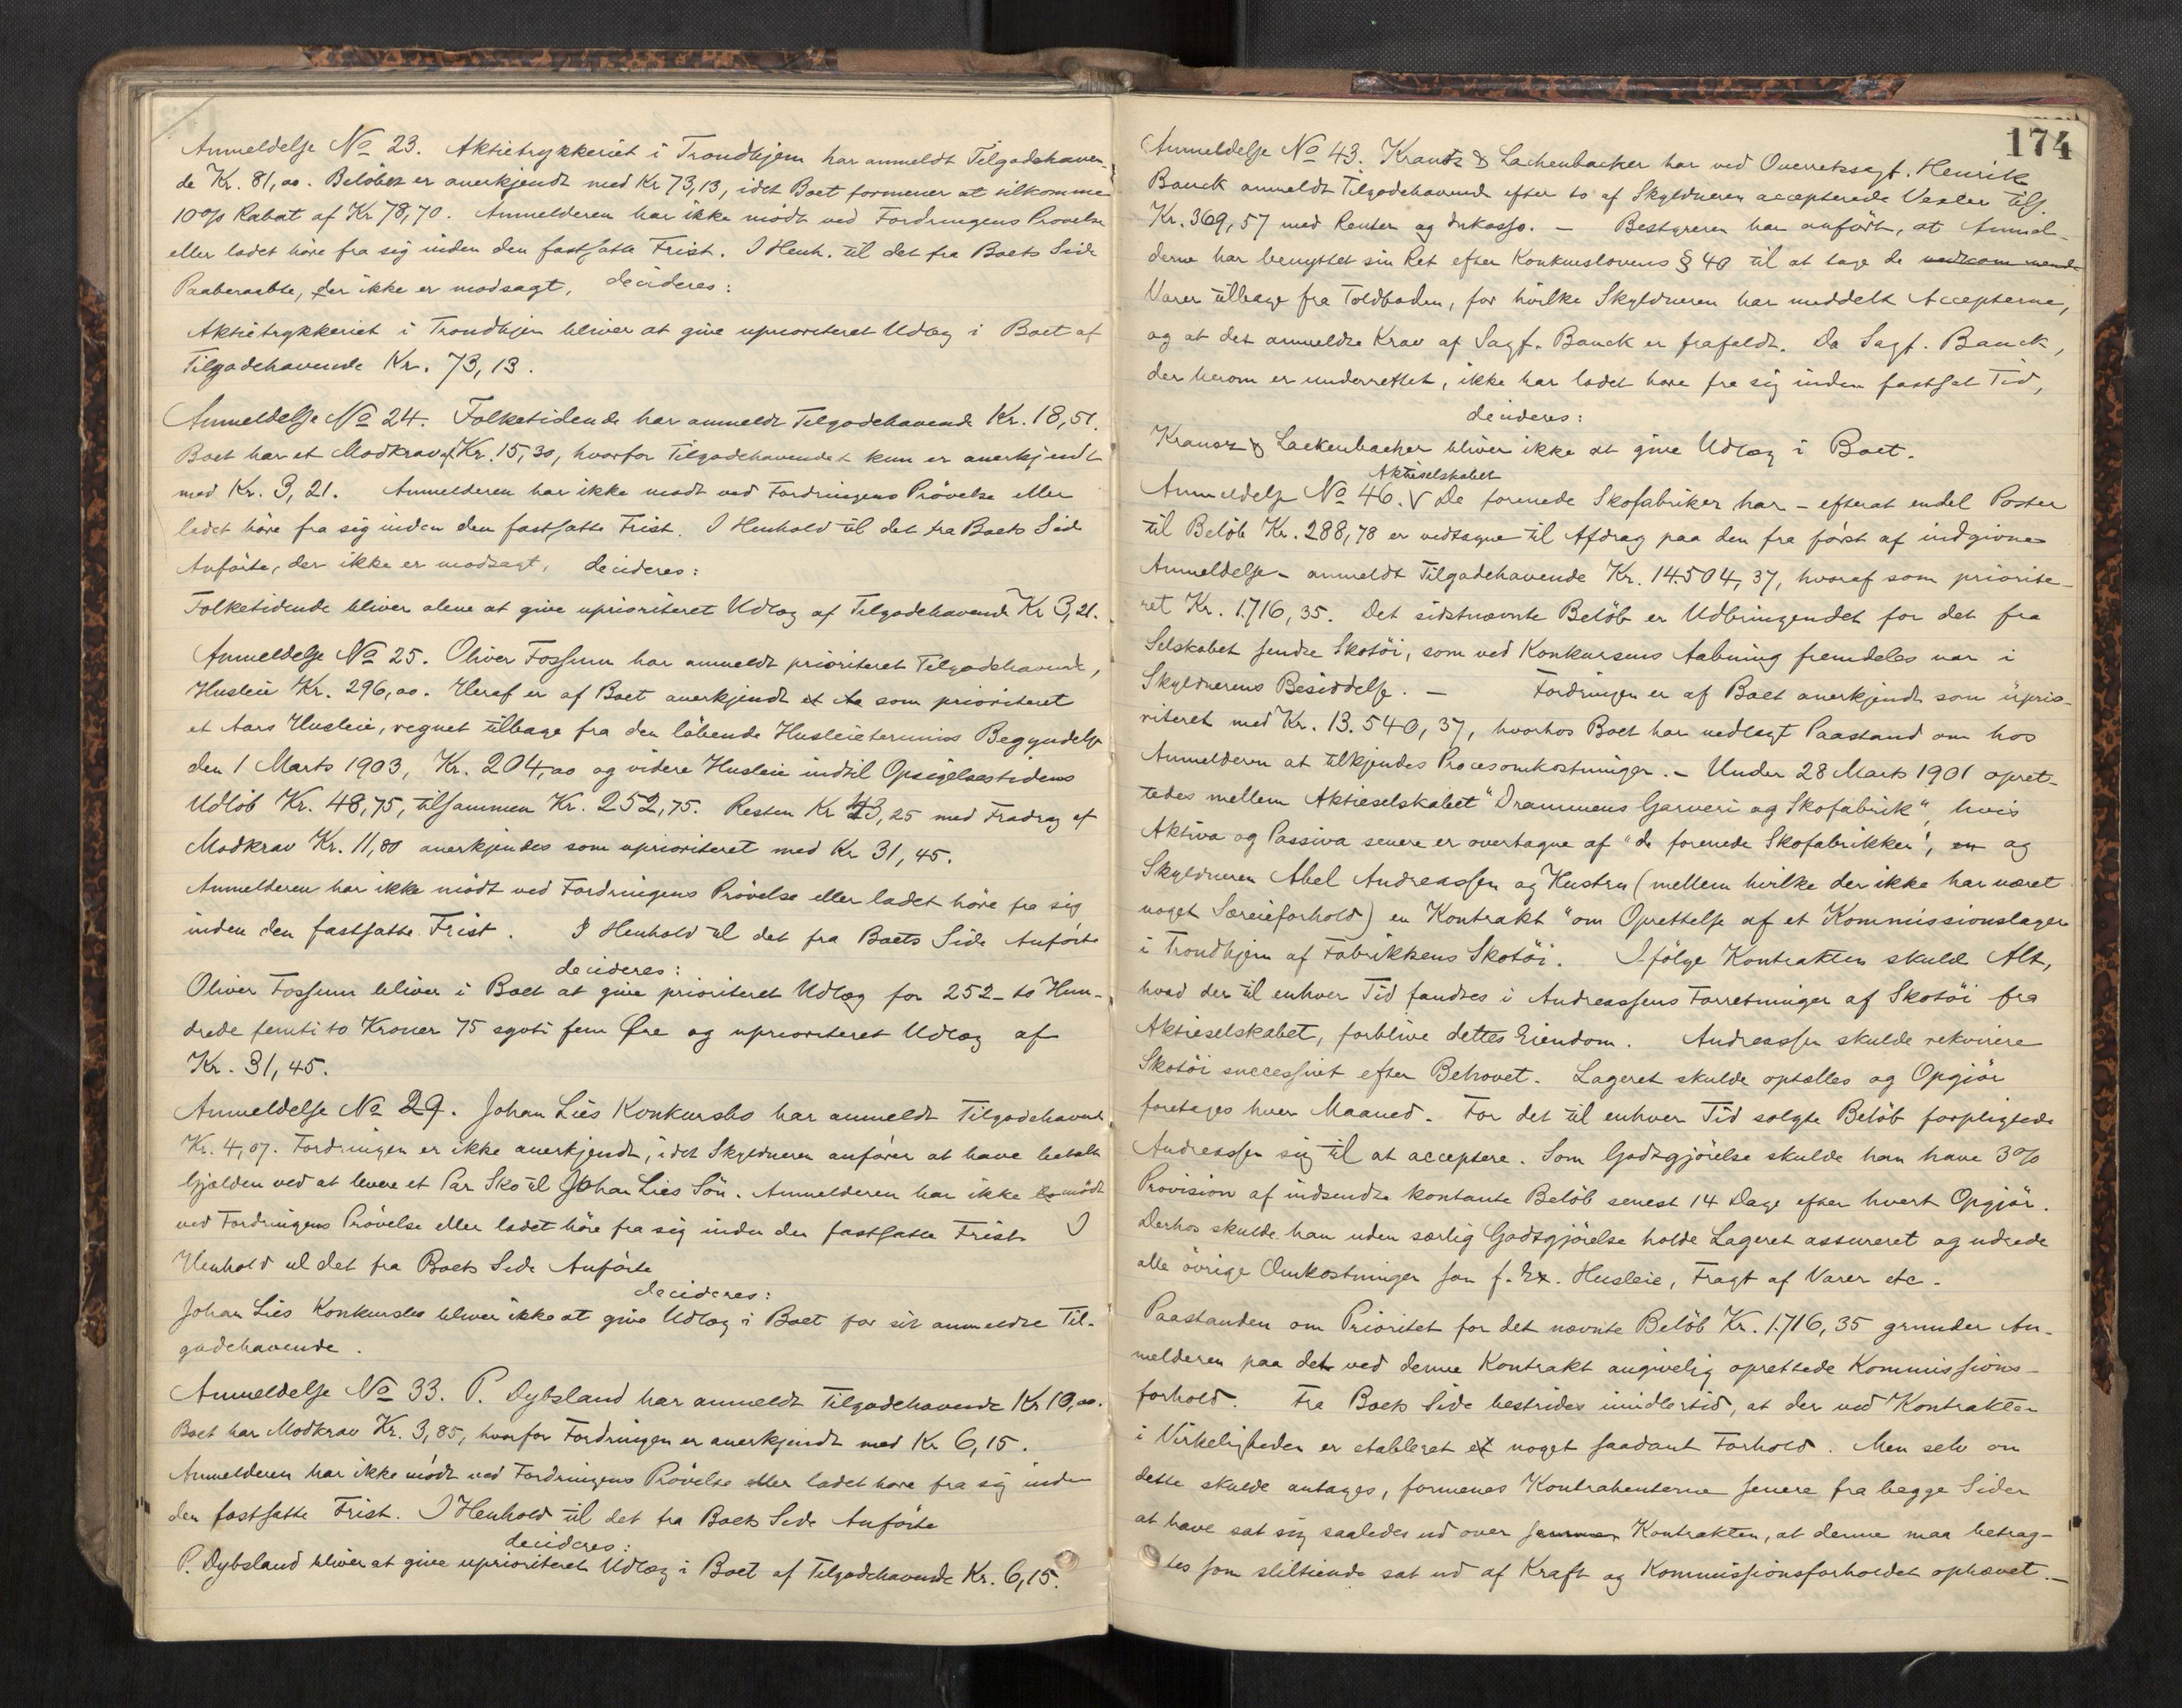 Anmeldelse No 23. Aktietrykkeriet i Trondhjem har anmeldt Tilgodehaven-
de Kr. 81,00. Beløbet er anerkjendt med Kr 73,13, idet Boet formener at tilkomme
10% Rabat af Kr 78,70. Anmelderen har ikke mødt ved Fordringens Prøvelse
eller ladet høre fra sig inden den fastsatte Frist. I Henh. til det fra Boets Side
Paaberaabte, der ikke er modsagt, decideres:
Aktietrykkeriet i Trondhjem bliver at give uprioriteret Udlæg i Boet af
Tilgodehavende Kr. 73,13.
Anmeldelse No 24. Folketidende har anmeldt Tilgodehavende Kr. 18,51.
Boet har et Modkrav af Kr. 15,30, hvorfor Tilgodehavendet kun er anerkjendt
med Kr. 3,21. Anmelderen har ikke mødt ved Fordringens Prøvelse eller
ladet høre fra sig inden den fastsatte Frist. I Henhold til det fra Boets Side
Anførte, der ikke er modsagt, decideres:
Folketidende bliver alene at give uprioriteret Udlæg af Tilgodehavende Kr 3,21.
Anmeldelse No 25. Oliver Fossum har anmeldt prioriteret Tilgodehavende,
Husleie Kr. 296,00. Heraf er af Boet anerkjendt et Aa som prioriteret
et Aars Husleie, regnet tilbage fra den løbende Husleietermins Begyndelse
den 1 Marts 1903, Kr. 204,00 og videre Husleie indtil Opsigelsestidens
Udløb Kr. 48,75, tilsammen Kr. 252,75. Resten Kr 43,25 med Fradrag af
Modkrav Kr. 11,80 anerkjendes som uprioriteret med Kr 31,45.
Anmelderen har ikke mødt ved Fordringens Prøvelse eller ladet høre fra sig
inden den fastsatte Frist. I Henhold til det fra Boets Side Anførte
decideres:
Oliver Fossum bliver i Boet at give prioriteret Udlæg for 252 - to Hun-
drede femti to Kroner 75 sytti fem Øre og uprioriteret Udlæg af
Kr. 31,45.
Anmeldelse No 29. Johan Lies Konkursbo har anmeldt Tilgodehavende
Kr. 4,07. Fordringen er ikke anerkjendt, idet Skyldneren anfører at have betalt
Gjælden ved at levere et Par Sko til Johan Lies Søn. Anmelderen har ikke mødt
ved Fordringens Prøvelse eller ladet høre fra sig inden den fastsatte Frist I
Henhold til det fra Boets Side Anførte
decideres:
Johan Lies Konkursbo bliver ikke at give Udlæg i Boet for sit anmeldte Til-
godehavende.
Anmeldelse No 33. P. Dybsland har anmeldt Tilgodehavende Kr 10,00.
Boet har Modkrav Kr. 3,85, hvorfor Fordringen er anerkjendt med Kr 6,15.
Anmelderen har ikke mødt ved Fordringens Prøvelse eller ladet høre fra sig inden
den fastsatte Frist. I Henhold til det fra Boets Side Anførte
decideres:
P. Dybsland bliver at give uprioriteret Udlæg i Boet af Tilgodehavende Kr. 6,15.
174
Anmeldelse No 43. Krantz & Lachenbacher har ved Overretssagf. Henrik
Bauck anmeldt Tilgodehavende efter to af Skyldneren accepterede Vexler tils.
Kr. 369,57 med Renter og Inkasso. - Bestyreren har anført, at Anmel-
derne har benyttet sin Ret efter Konkurslovens § 40 til at tage de vedkommende
Varer tilbage fra Toldboden, for hvilke Skyldneren har meddelt Accepterne,
og at det anmeldte Krav af Sagf. Bauck er frafaldt. Da Sagf. Bauck,
der herom er underrettet, ikke har ladet høre fra sig inden fastsat Tid,
decideres:
Krantz & Lackenbacher bliver ikke at give Udlæg i Boet.
Aktieselskabet
Anmeldelse No 46. V De forenede Skofabriker har - efterat endel Poster
til Beløb Kr. 288,78 er vedtagne til Afdrag paa den fra først af indgivne
Anmeldelse - anmeldt Tilgodehavende Kr. 14504,37, hvoraf som priorite-
ret Kr. 1716,35. Det sidstnævnte Beløb er Udbringendet for det fra
Selskabet sendte Skotøi, som ved Konkursens Aabning fremdeles var i
Skyldnerens Besiddelse. - Fordringen er af Boet anerkjendt som uprio-
riteret med Kr. 13.540,37, hvorhos Boet har nedlagt Paastand om hos
Anmelderen at tilkjendes Procesomkostninger. - Under 28 Marts 1901 opret-
tedes mellem Aktieselskabet "Drammens Garveri og Skofabrik", hvis
Aktiva og Passiva senere er overtagne af "de forenede Skofabrikker", en og
Skyldneren Abel Andreassen og Hustru (mellem hvilke der ikke har været
noget Særeieforhold) en Kontrakt "om Oprettelse af et Kommissionslager
i Trondhjem af Fabrikkens Skotøi. Ifølge Kontrakten skulde Alt,
hvad der til enhver Tid fandtes i Andreassens Forretninger af Skotøi fra
Aktieselskabet, forblive dettes Eiendom. Andreassen skulde rekvirere
Skotøi successivt efter Behovet. Lageret skulde optælles og Opgjør
foretages hver Maaned. For det til enhver Tid solgte Beløb forpligtede
Andreassen sig til at acceptere. Som Godtgjørelse skulde han have 3%
Provision af indsendte kontante Beløb senest 14 Dage efter hvert Opgjør.
Derhos skulde han uden særlig Godtgjørelse holde Lageret assureret og udrede
alle øvrige Omkostninger som f. Ex. Husleie, Fragt af Varer etc.
Paastanden om Prioritet for det nævnte Beløb Kr. 1716,35 grunder An-
melderen paa det ved denne Kontrakt angivelig oprettede Kommissions-
forhold. Fra Boets Side bestrides imidlertid, at der ved Kontrakten
i Virkeligheden er etableret et noget saadant Forhold. Men selv om
dette skulde antages, formenes Kontrahenterne senere fra begge Sider
at have sat sig saaledes ud over Kontrakten, at denne maa betrag-
tes som stiltiende sat ud af Kraft og Kommissionsforholdet ophævet. -